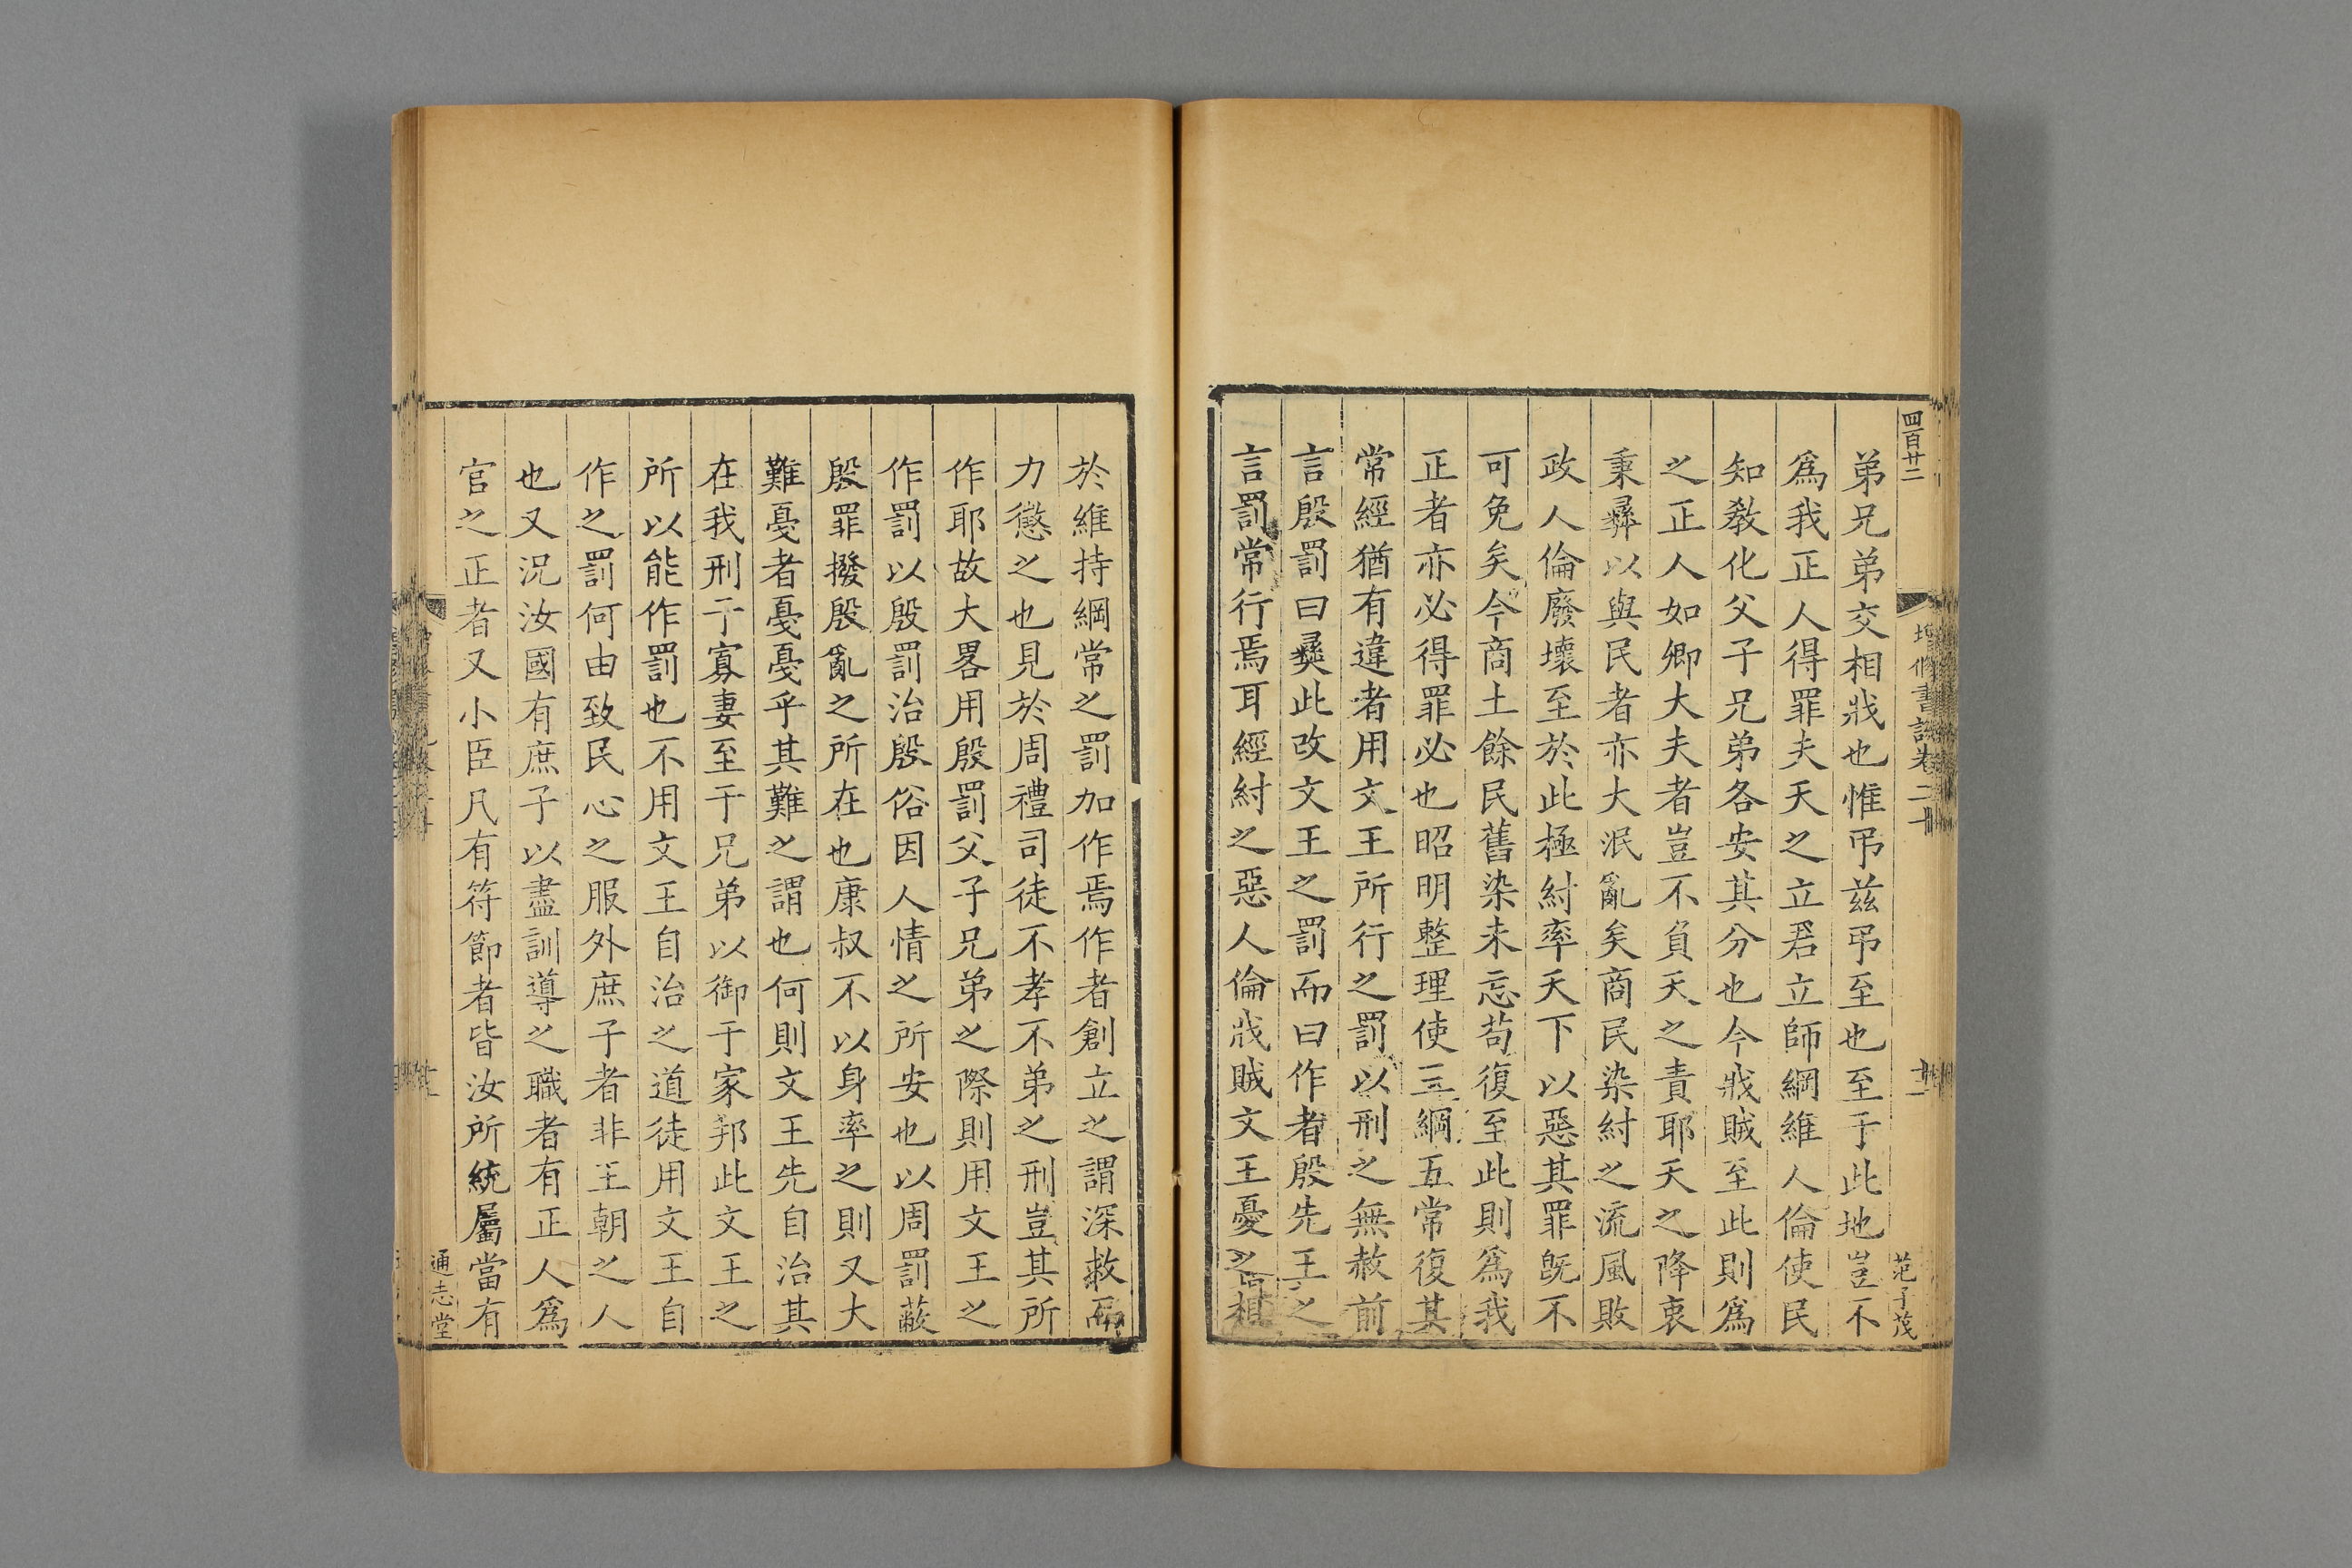 四百廿二
增修書說卷二十
十一
范子茂
弟兄弟交相戕也惟弔兹弔至也至于此地豈不
爲我正人得罪夫天之立君立師綱維人倫使民
知教化父子兄弟各安其分也今戕賊至此則爲
之正人如卿大夫者豈不負天之責耶天之降衷
秉彛以與民者亦大泯亂矣商民染紂之流風敗
政人倫廢壞至於此極紂率天下以惡其罪旣不
可免矣今商土餘民舊染未忘苟復至此則爲我
正者亦必得罪必也昭明整理使三綱五常復其
常經猶有違者用文王所行之罰以刑之無赦前
言殷罰曰彛此改文王之罰而曰作者殷先王之
言罰常行焉耳經紂之惡人倫戕賊文王憂之
於維持綱常之罰加作焉作者創立之謂深救而
力懲之也見於周禮司徒不孝不弟之刑豈其所
作耶故大畧用殷罰父子兄弟之際則用文王之
作罰以殷罰治殷俗因人情之所安也以周罰蔽
殷罪撥殷亂之所在也康叔不以身率之則又大
難憂者憂憂乎其難之謂也何則文王先自治其
在我刑于寡妻至于兄弟以御于家邦此文王之
所以能作罰也不用文王自治之道徒用文王自
作之罰何由致民心之服外庶子者非王朝之人
也又況汝國有庶子以盡訓導之職者有正人爲
官之正者又小臣凡有符節者皆汝所統屬當有
通志堂